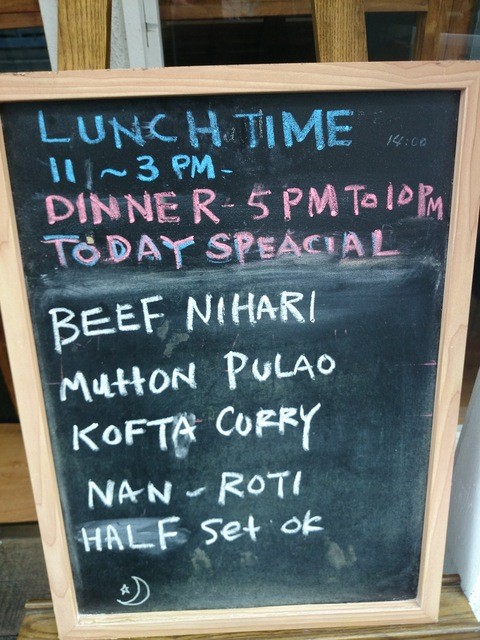 LUNCH TIME 14:00
11 ~ 3 PM-
DINNER - 5 PM To 10 PM
TODAY SPEACIAL
BEEF NIHARI
MuttON PULAO
KOFTA CURRY
NAN - ROTI
HALF Set ok